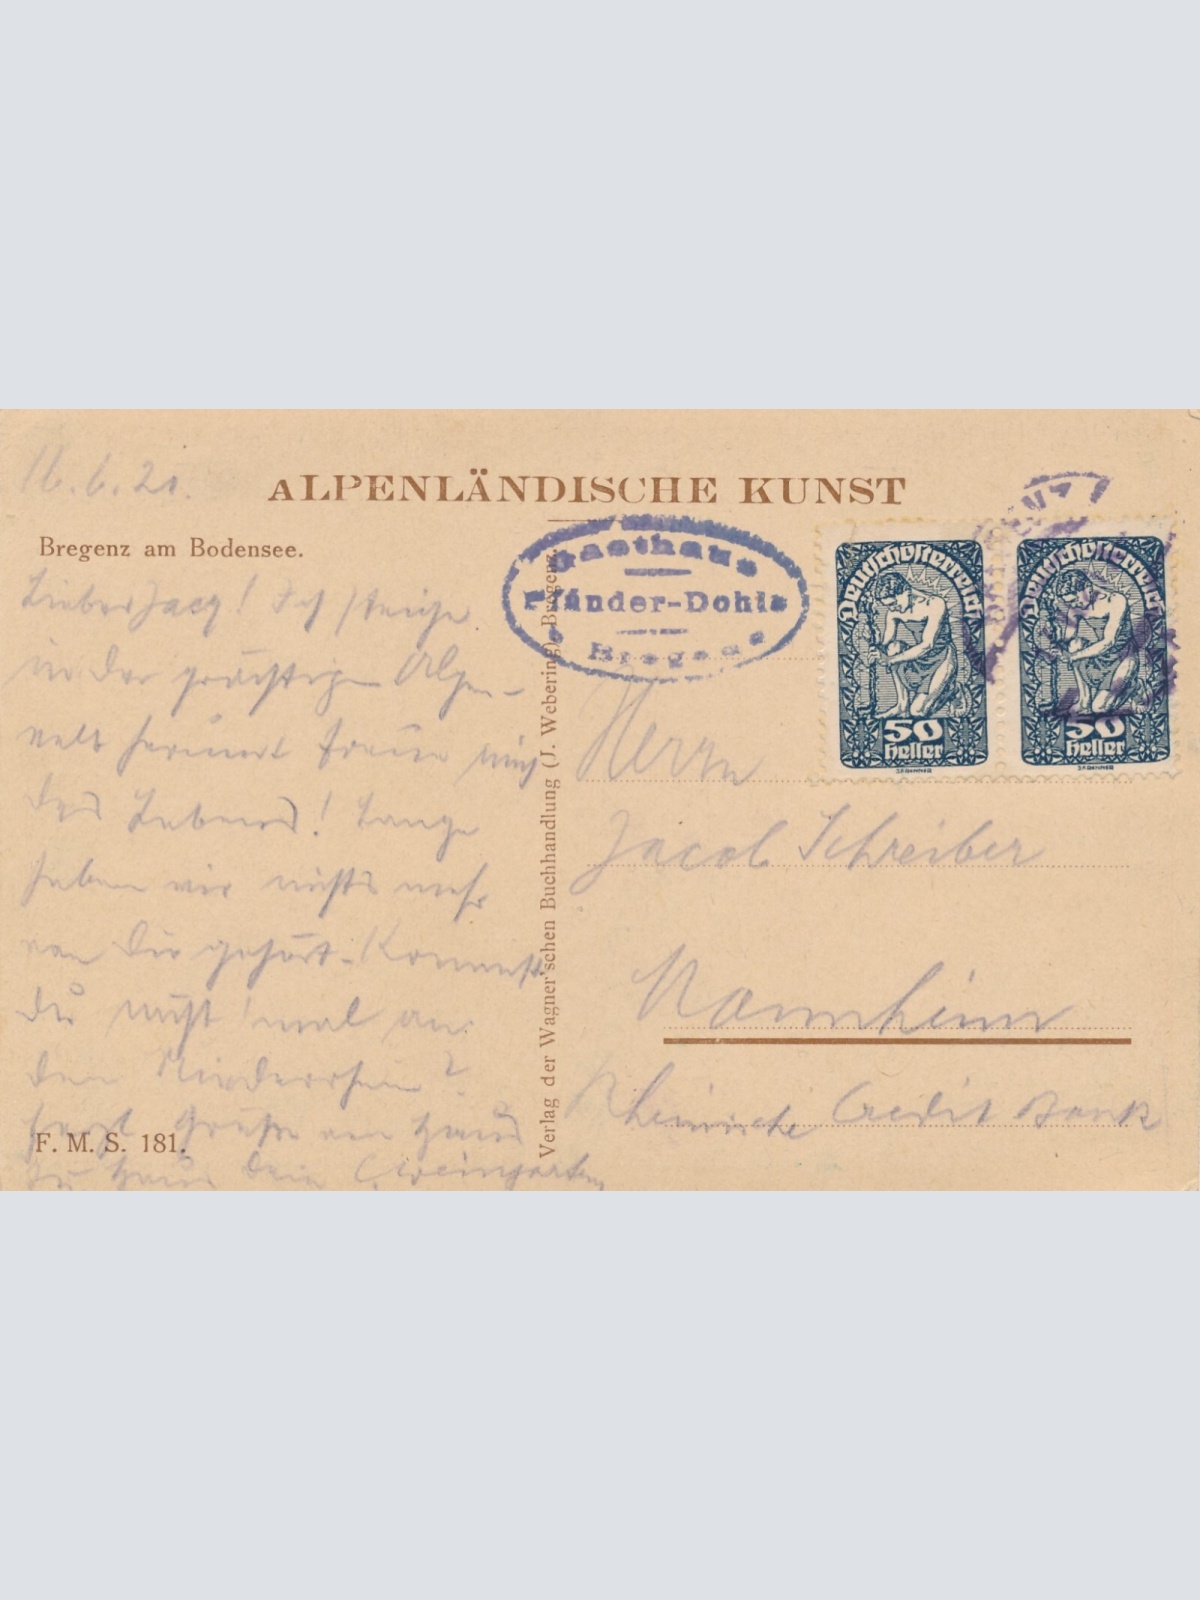 16.6.20.
ALPENLÄNDISCHE KUNST
Bregenz am Bodensee.
Gasthaus
Pfänder-Dohle
Bregenz
Deutschösterreich
50
Heller
Deutschösterreich
50
Heller
Lieber Jacq! Ich steige
in der prächtigen Alpen-
welt herum freue mich
des Lebens! Lange
haben wir nichts mehr
von Dir gehört. Kommst
Du nicht 'mal an
den Niederrhein?
Grüße von Haus
zu Haus Dein C. Weingarten
F. M. S. 181.
Verlag der Wagner'schen Buchhandlung (J. Webering), Bregenz.
Herrn
Jacob Schreiber
Mannheim
Rheinische Credit Bank